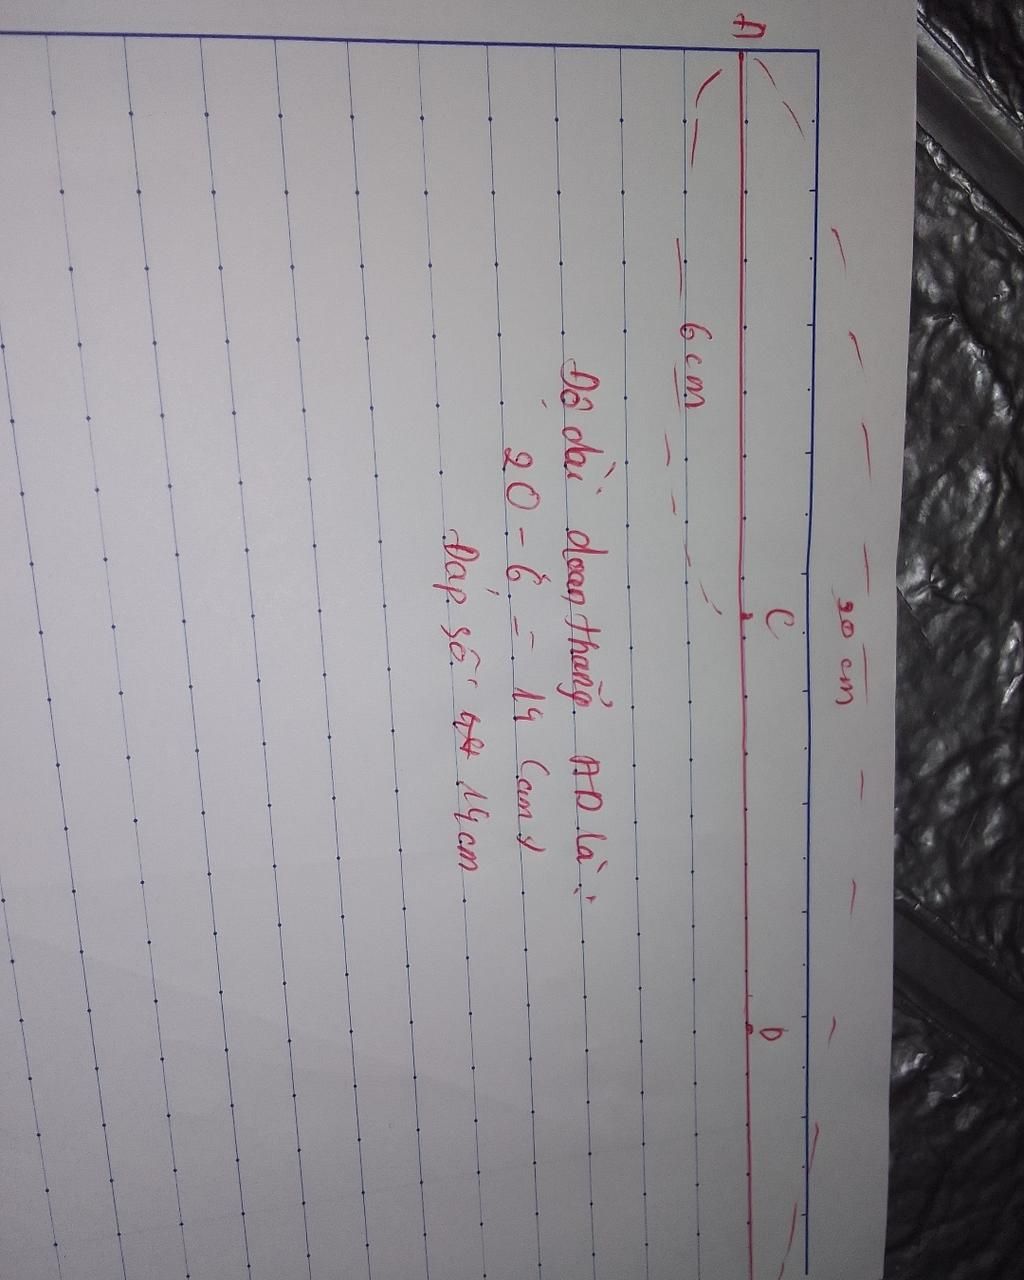 20 cm
A
C
D
6 cm
Độ dài đoạn thẳng AD là :
20 - 6 = 14 (cm)
Đáp số: 14 cm